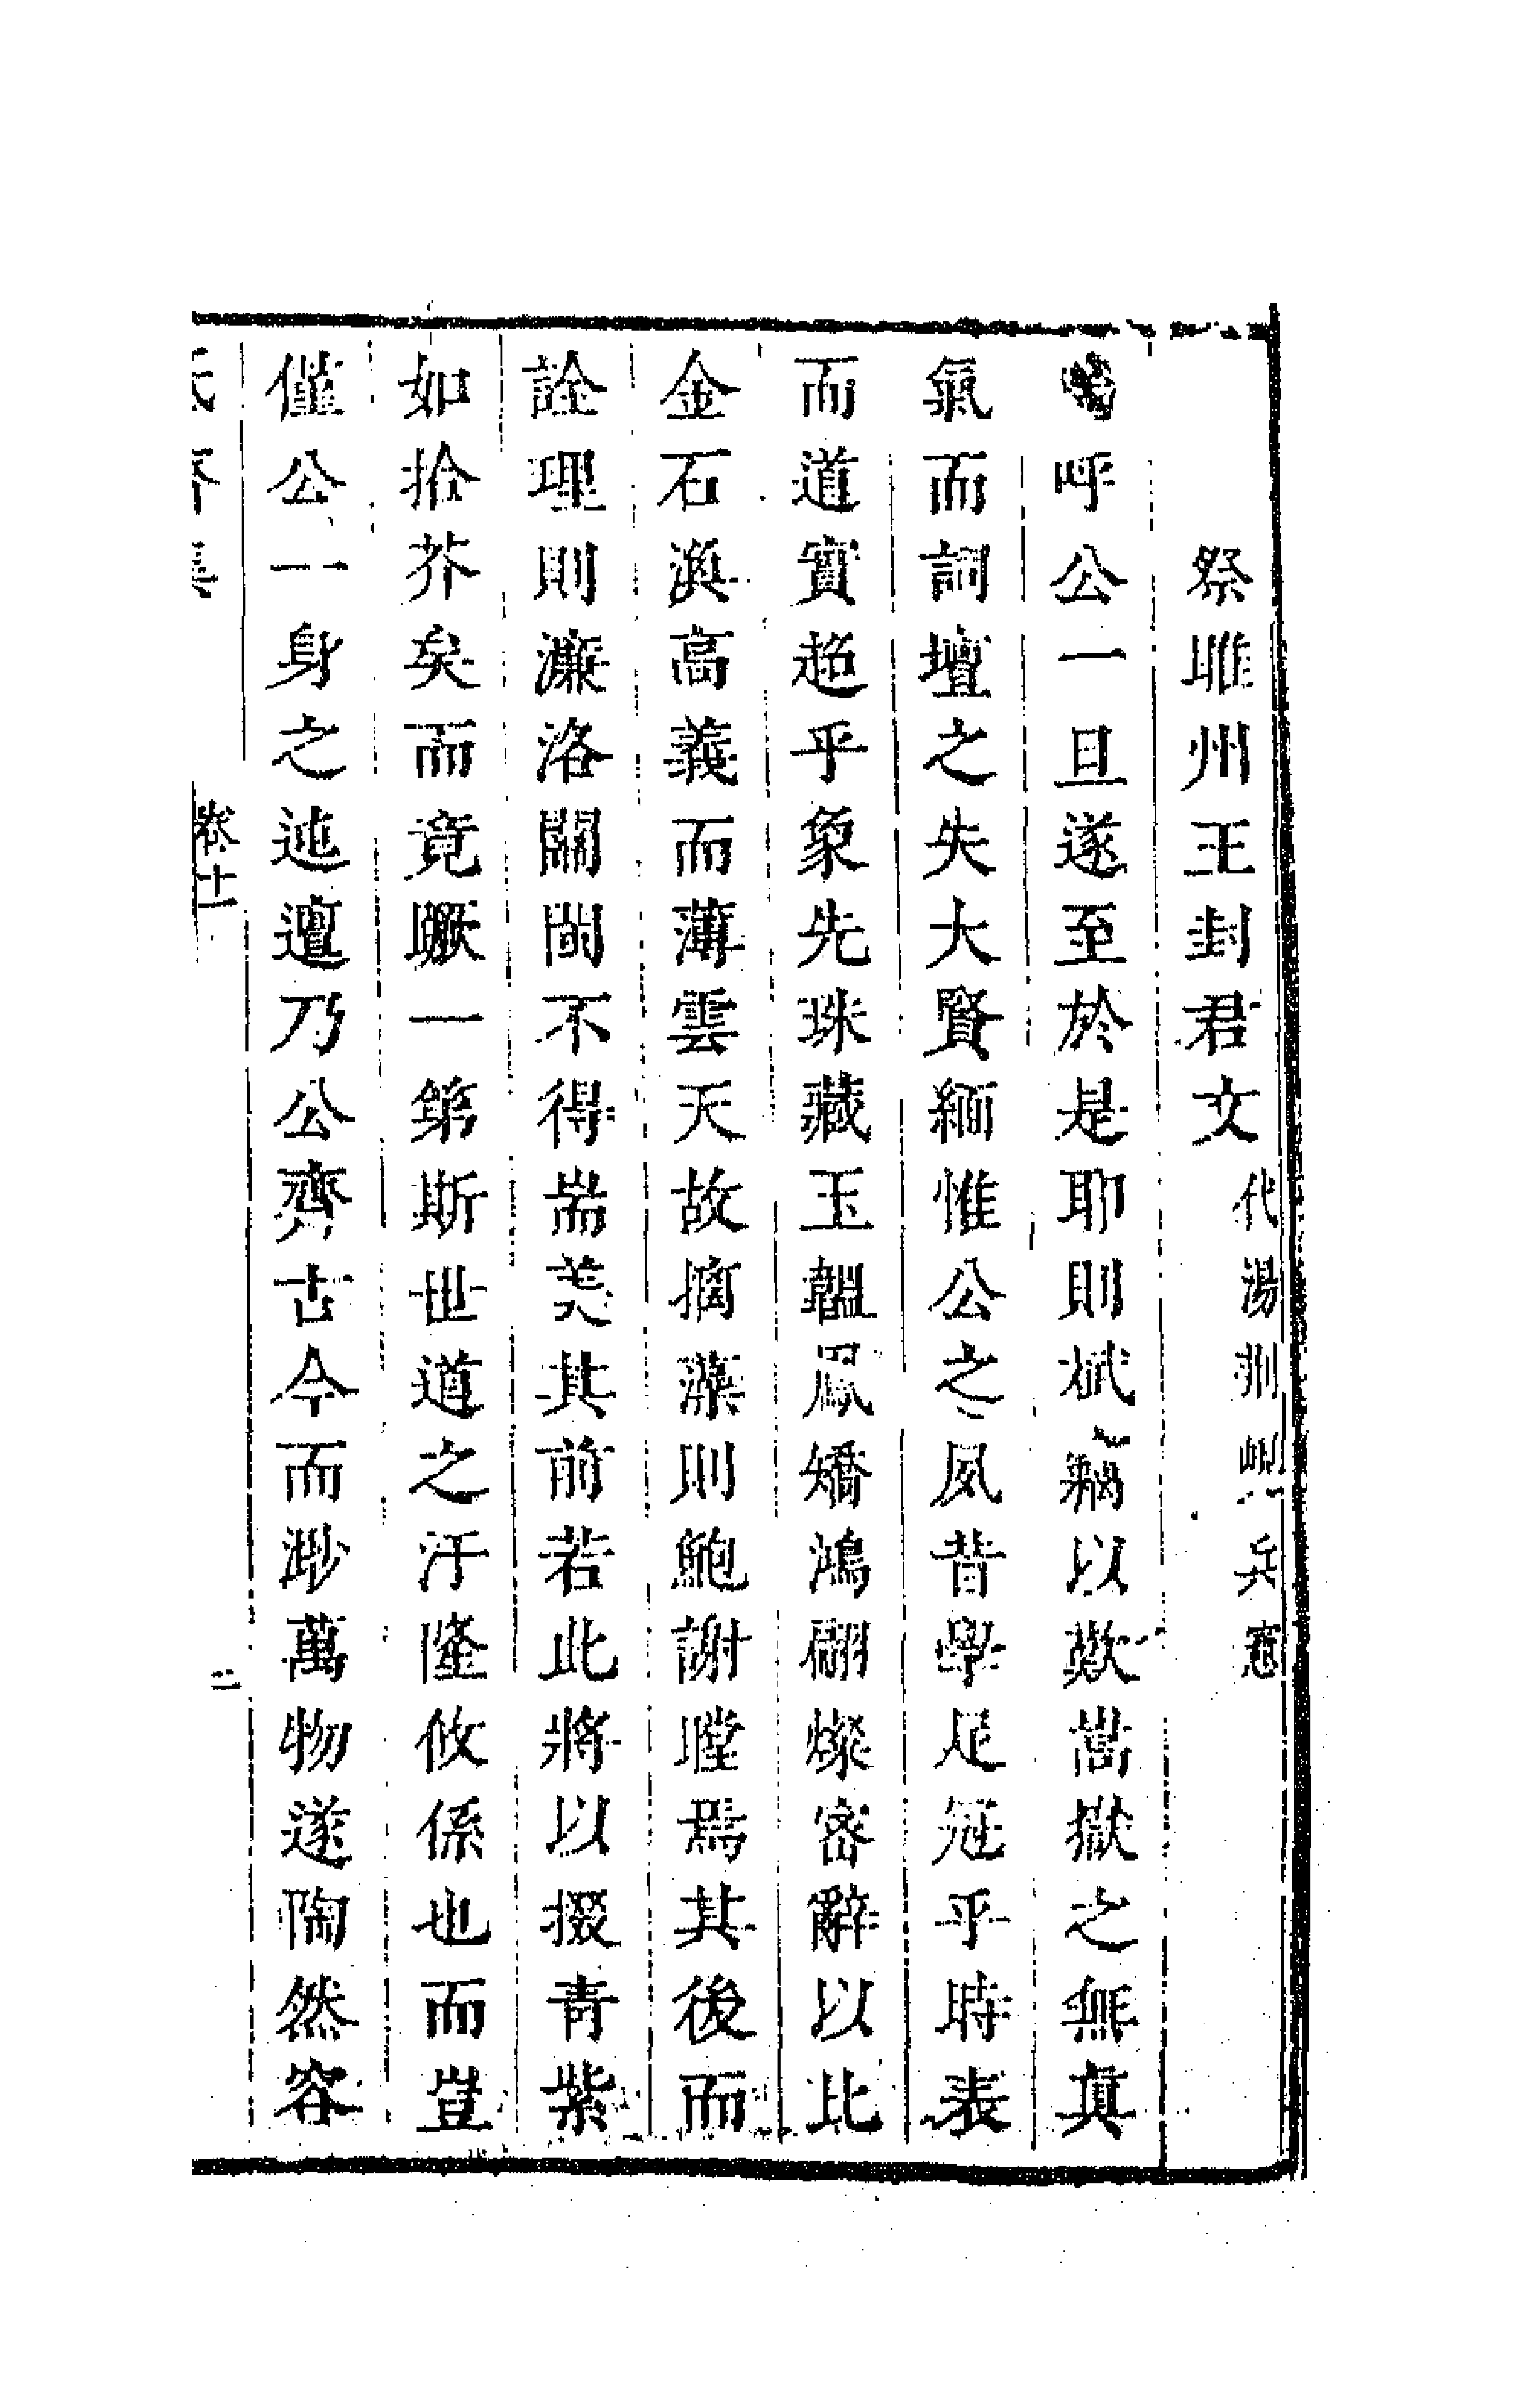 祭睢州王封君文 代湯荆峴兵憲
呼公一旦遂至於是耶則斌竊以歎嵩嶽之無真
氣而詞壇之失大賢緬惟公之夙昔學足冠乎時表
而道實超乎象先珠藏玉韞鳳矯鴻翩燦密辭以比
金石渙高義而薄雲天故摛藻則鮑謝瞠焉其後而
詮理則濂洛關閩不得耑美其前若此將以掇青紫
如拾芥矣而竟蹶一第斯世道之汙隆攸係也而豈
僅公一身之迍邅乃公齊古今而渺萬物遂陶然容
卷十一
二